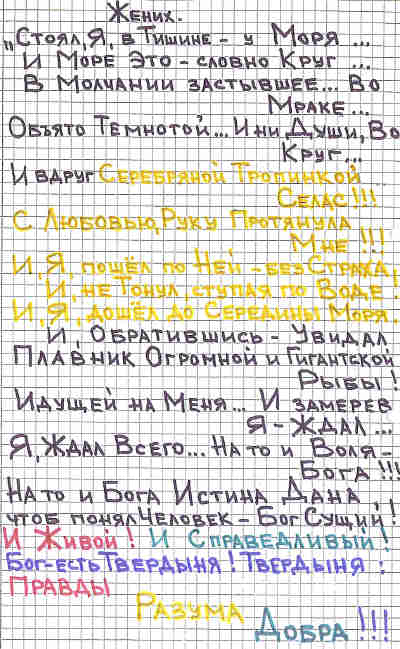 Жених.
„Стоял, Я, в Тишине - у Моря ...
И Море это - словно Круг ...
В Молчании застывшее... Во
Мраке...
Объято Темнотой... И ни Души, Во
Круг...
И вдруг Серебряной Тропинкой
Селас!!!
С Любовью, Руку Протянула
Мне !!!
И, Я, пошёл по Ней - без Страха,
И, не Тонул, ступая по Воде !
И, Я, дошёл до Середины Моря..
И, Обратившись - Увидал
Плавник Огромной и Гигантской
Рыбы !
Идущей на Меня... И замерев
Я - Ждал ...
Я, Ждал Всего... На то и Воля -
Бога !!!
На то и Бога Истина Дана, !
чтоб понял Человек - Бог Сущий !
И Живой ! И Справедливый !
Бог-есть Твердыня ! Твердыня :
Правды
Разума
Добра !!!